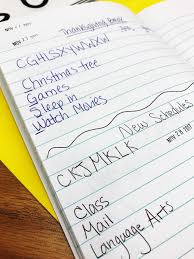 Thanksgiving Break
NOV 2
CGHLSXYWWXW
Christmas tree
Games
Sleep in
Watch Movies
New Schedules
NOV 28 2017
CKJMKLK
Class
Mail
Language Arts